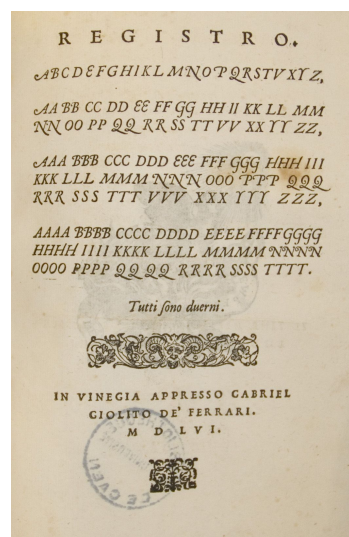 REGISTRO.
ABCDEFGHIKLMNOPQRSTVXYZ,
AA BB CC DD EE FF GG HH II KK LL MM
NN OO PP QQ RR SS TT VV XX YY ZZ,
AAA BBB CCC DDD EEE FFF GGG HHH III
KKK LLL MMM NNN OOO PPP QQQ
RRR SSS TTT VVV XXX YYY ZZZ,
AAAA BBBB CCCC DDDD EEEE FFFF GGGG
HHHH IIII KKKK LLLL MMMM NNNN
OOOO PPPP QQ QQ RRRR SSSS TTTT.
Tutti ſono duerni.
IN VINEGIA APPRESSO GABRIEL
GIOLITO DE' FERRARI.
M D LVI.